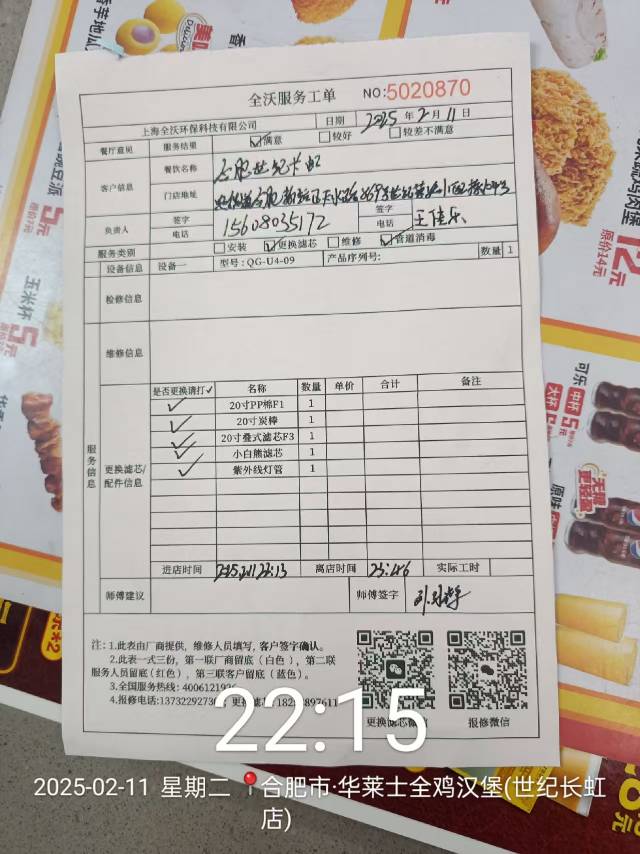 全沃服务工单 NO:5020870
上海全沃环保科技有限公司 日期 2025年2月11日
餐厅意见 服务结果 ☑满意 □较好 □较差不满意
客户信息 餐饮名称 合肥世纪长虹
门店地址
负责人 签字 电话 15608035172 签字 电话 王佳乐
服务类别 □安装 ☑更换滤芯 □维修 ☑管道消毒
设备信息 设备一 型号: QG-U4-09 产品序列号: 数量 1
检修信息
维修信息
服务信息
更换滤芯/配件信息
是否更换请打✓ 名称 数量 单价 合计 备注
✓ 20寸PP棉F1 1
✓ 20寸炭棒 1
✓ 20寸叠式滤芯F3 1
✓ 小白熊滤芯 1
✓ 紫外线灯管 1
进店时间 离店时间 实际工时
师傅建议 师傅签字
注: 1.此表由厂商提供, 维修人员填写, 客户签字确认。
2.此表一式三份, 第一联厂商留底(白色)、第二联
服务人员留底(红色)、第三联客户留底(蓝色)。
3.全国服务热线: 4006121
4.报修电话:137322927
更换滤芯微信 报修微信
22:15
2025-02-11 星期二 合肥市·华莱士全鸡汉堡(世纪长虹
店)
玉米杯
5元
原价14元
可乐
中杯
大杯
无糖
原味